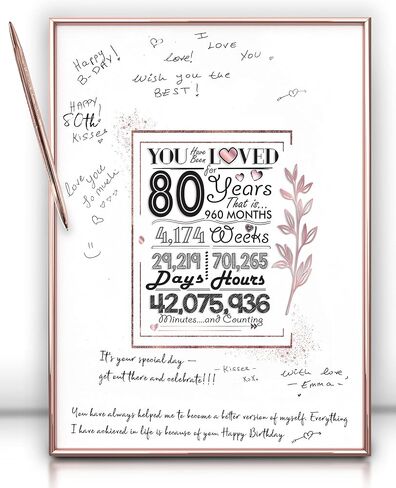 I LOVE YOU
Happy
B-DAY!
love!
Wish you the
BEST!
HAPPY
80th
Kisses
love you
so much
YOU Have Been LOVED
for
80 Years
That is...
960 MONTHS
4,174 Weeks
29,219 701,265
Days Hours
42,075,936
Minutes....and Counting
It's your special day —
get out there and celebrate!!!
- Kisses -
xoxo
With love,
- Emma -
You have always helped me to become a better version of myself. Everything
I have achieved in life is because of you. Happy Birthday